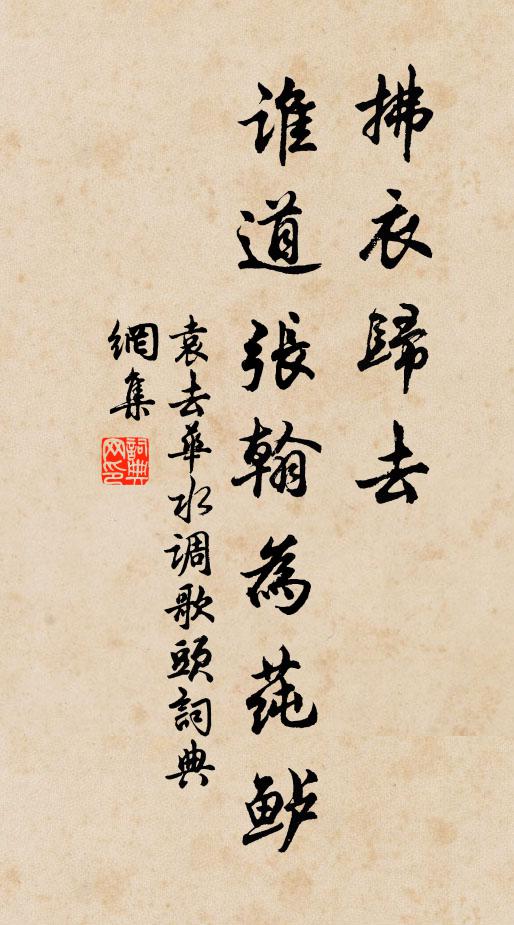 拂衣歸去
谁道張翰為莼鲈
袁去華水调歌頭詞典
網集
詞典网印